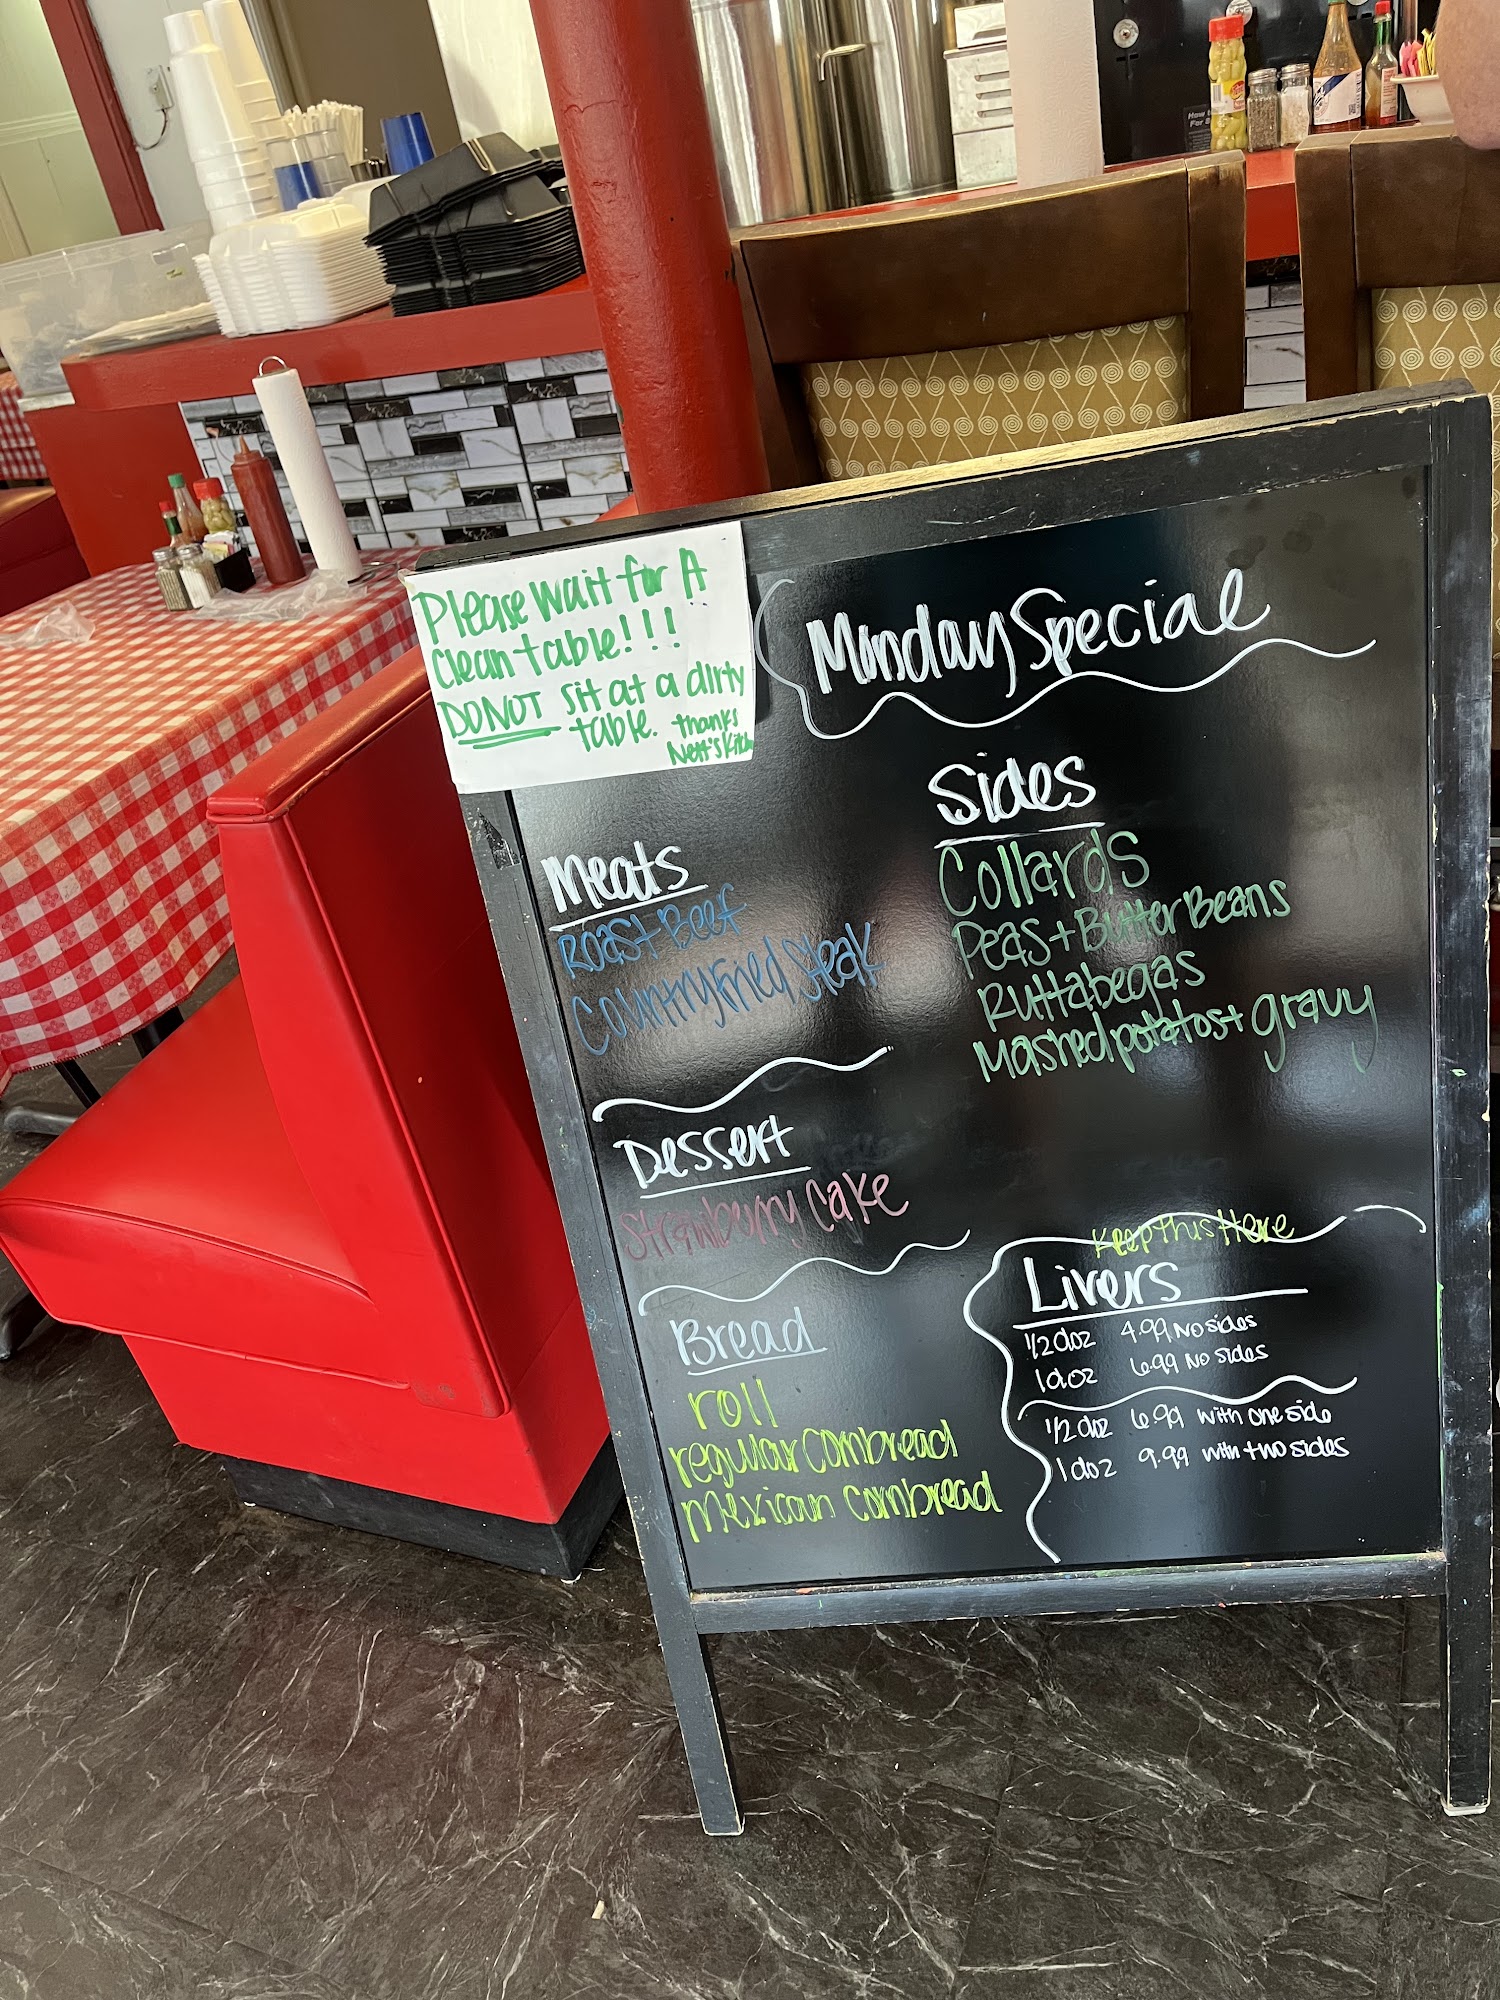 Please wait for A
clean table!!!
DO NOT sit at a dirty
table. thanks
Nett's Kitchen
Monday Special
Meats
Roast Beef
Country Fried Steak
Dessert
Strawberry Cake
Bread
roll
regular cornbread
mexican cornbread
Sides
Collards
Peas + Butter Beans
Ruttabegas
Mashed potatos + gravy
Keep this Here
Livers
1/2 doz 4.99 No sides
1 doz 6.99 No sides
1/2 doz 6.99 with one side
1 doz 9.99 with two sides